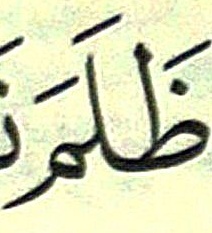 ظَلَمَ